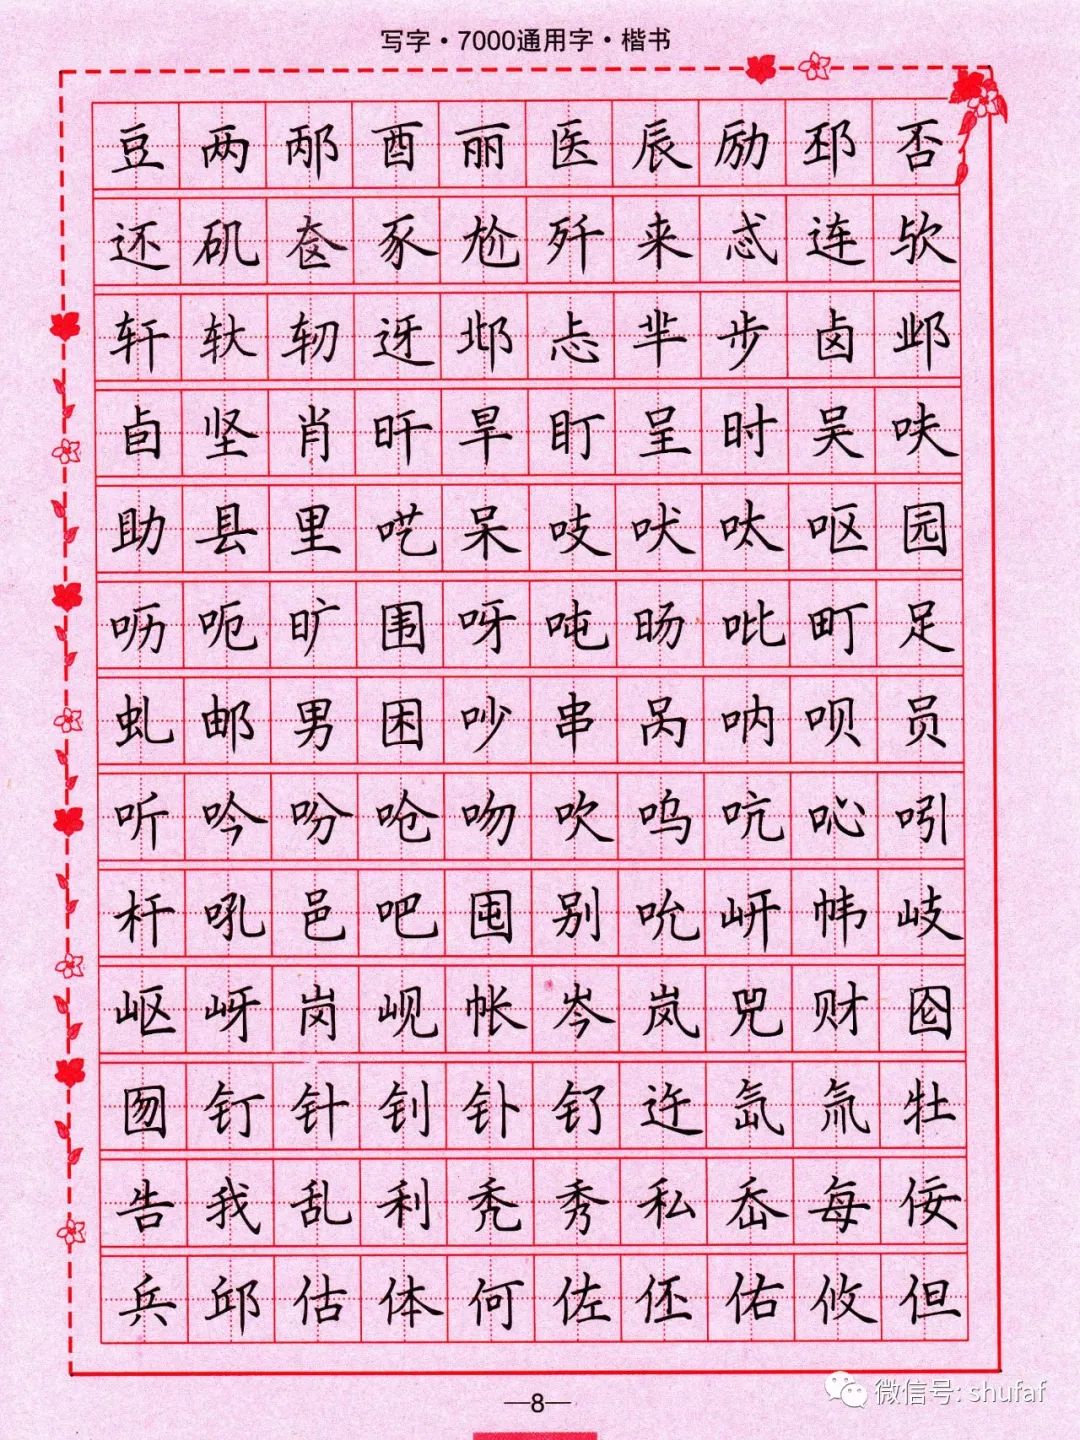 写字·7000通用字·楷书
豆两邴酉丽医辰励邳否
还矶奁豕尬歼来忒连欤
轩轪轫迓邶忐芈步卤邺
卣坚肖旰旱盯呈时吴呋
助县里呓呆吱吠呔呕园
呖呃旷围呀吨旸吡町足
虬邮男困吵串呙呐呗员
听吟吩呛吻吹呜吭吣吲
杆吼邑吧囤别吮岍帏岐
岖岈岗岘帐岑岚兕财囵
囫钉针钊钋钌迕氙氚牡
告我乱利秃秀私岙每佞
兵邱估体何佐伾佑攸但
—8—
微信号: shufaf